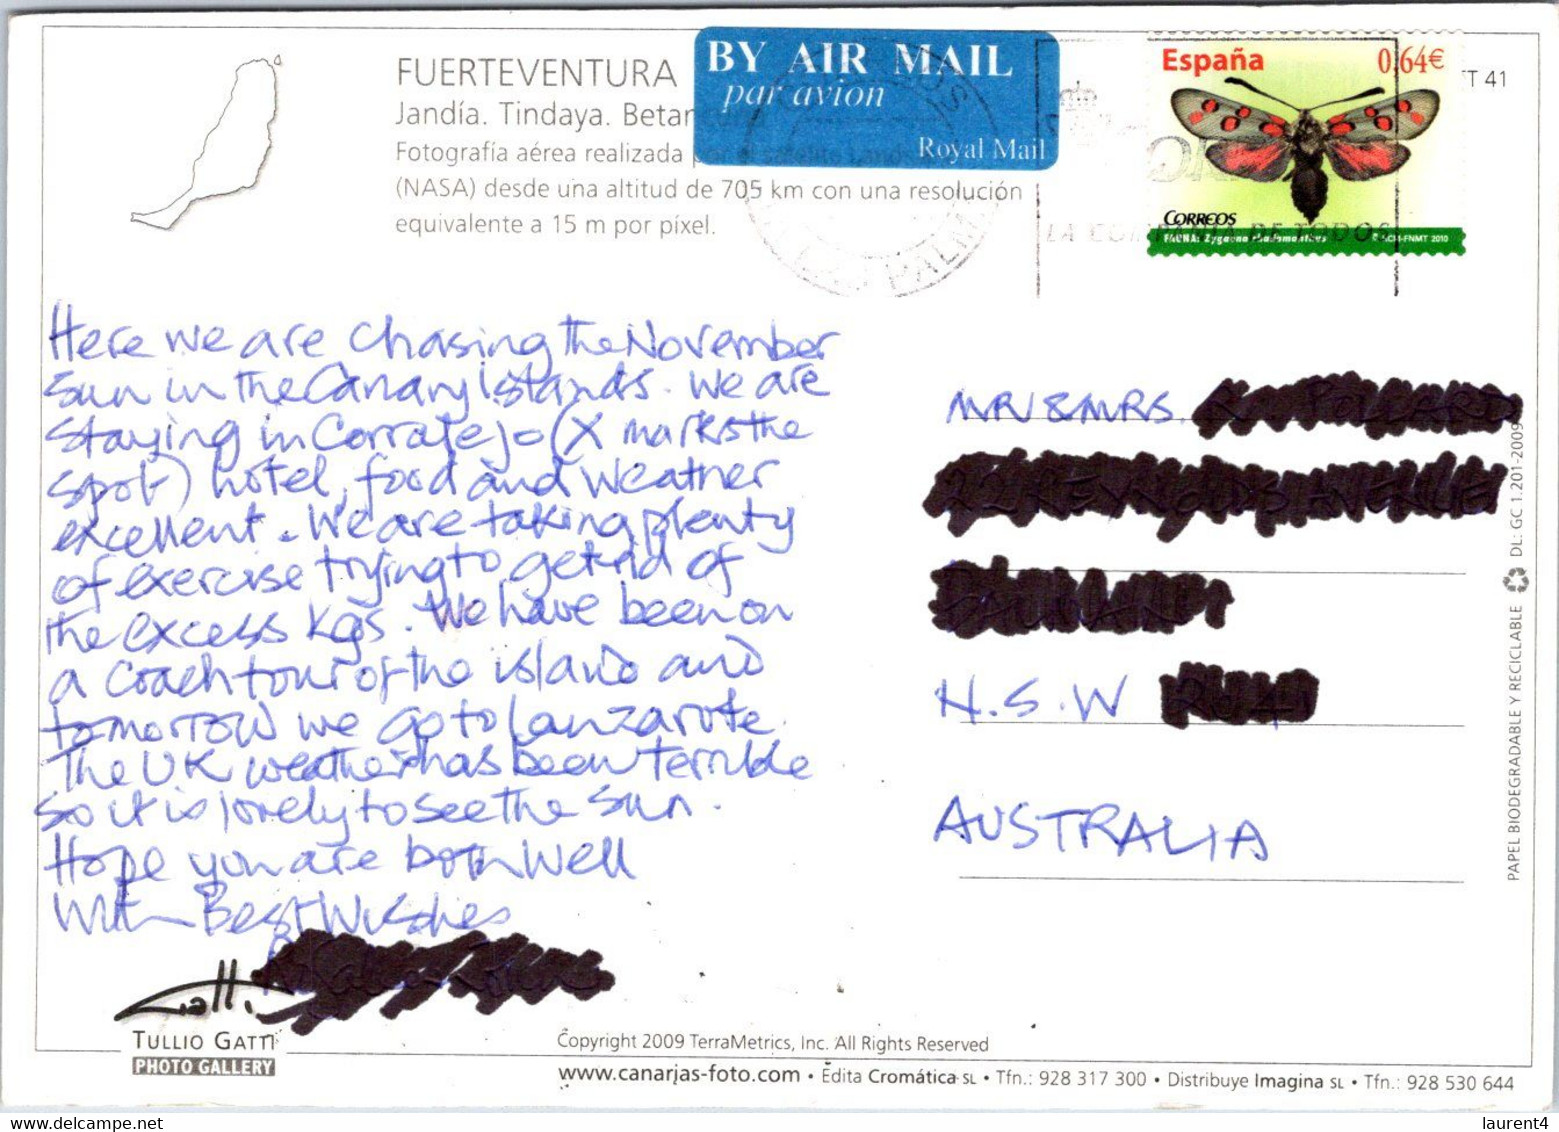 FUERTEVENTURA
Jandía. Tindaya.
Fotografía aérea realizada
(NASA) desde una altitud de 705 km con una resolución
equivalente a 15 m por píxel.
BY AIR MAIL
par avion
Royal Mail
España 0,64€
CORREOS
LA COMPAÑIA DE TODOS
T 41
Here we are chasing the November
sun in the Canary Islands. We are
staying in Corralejo (X marks the
spot) hotel, food and weather
excellent. We are taking plenty
of exercise trying to get rid of
the excess kgs. We have been on
a coach tour of the island and
tomorrow we go to Lanzarote
The UK weather has been terrible
so it is lovely to see the sun.
Hope you are both well
With Best Wishes
MR & MRS.
N.S.W
AUSTRALIA
PAPEL BIODEGRADABLE Y RECICLABLE DL: GC 1.201-2009
TULLIO GATTI
PHOTO GALLERY
Copyright 2009 TerraMetrics, Inc. All Rights Reserved
www.canarias-foto.com • Edita Cromática SL • Tfn.: 928 317 300 • Distribuye Imagina SL • Tfn.: 928 530 644
www.delcampe.net
laurent4